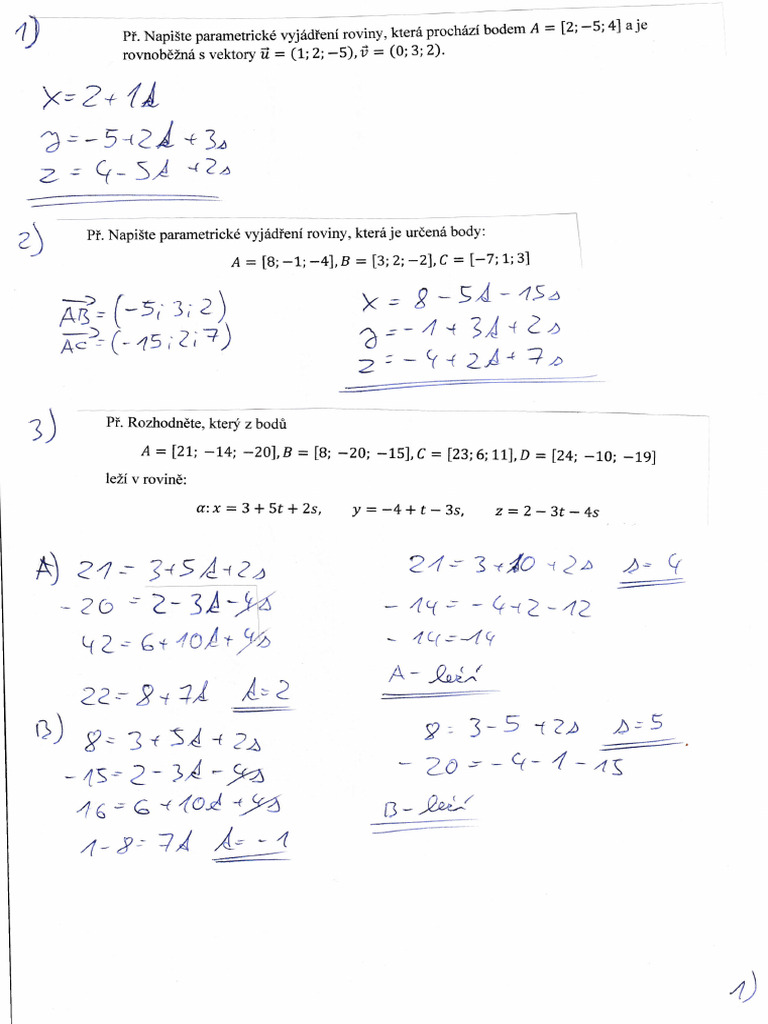 1)
Př. Napište parametrické vyjádření roviny, která prochází bodem A = [2; −5; 4] a je
rovnoběžná s vektory u⃗ = (1; 2; −5), v⃗ = (0; 3; 2).
x = 2 + 1t
y = −5 + 2t + 3s
z = 4 − 5t + 2s
2)
Př. Napište parametrické vyjádření roviny, která je určená body:
A = [8; −1; −4], B = [3; 2; −2], C = [−7; 1; 3]
AB = (−5; 3; 2)
AC = (−15; 2; 7)
x = 8 − 5t − 15s
y = −1 + 3t + 2s
z = −4 + 2t + 7s
3)
Př. Rozhodněte, který z bodů
A = [21; −14; −20], B = [8; −20; −15], C = [23; 6; 11], D = [24; −10; −19]
leží v rovině:
α: x = 3 + 5t + 2s, y = −4 + t − 3s, z = 2 − 3t − 4s
A) 21 = 3 + 5t + 2s
−20 = 2 − 3t − 4s
42 = 6 + 10t + 4s
22 = 8 + 7t t = 2
21 = 3 + 10 + 2s s = 4
−14 = −4 + 2 − 12
−14 = −14
A − leží
B) 8 = 3 + 5t + 2s
−15 = 2 − 3t − 4s
16 = 6 + 10t + 4s
1 − 8 = 7t t = −1
8 = 3 − 5 + 2s s = 5
−20 = −4 − 1 − 15
B − leží
1)